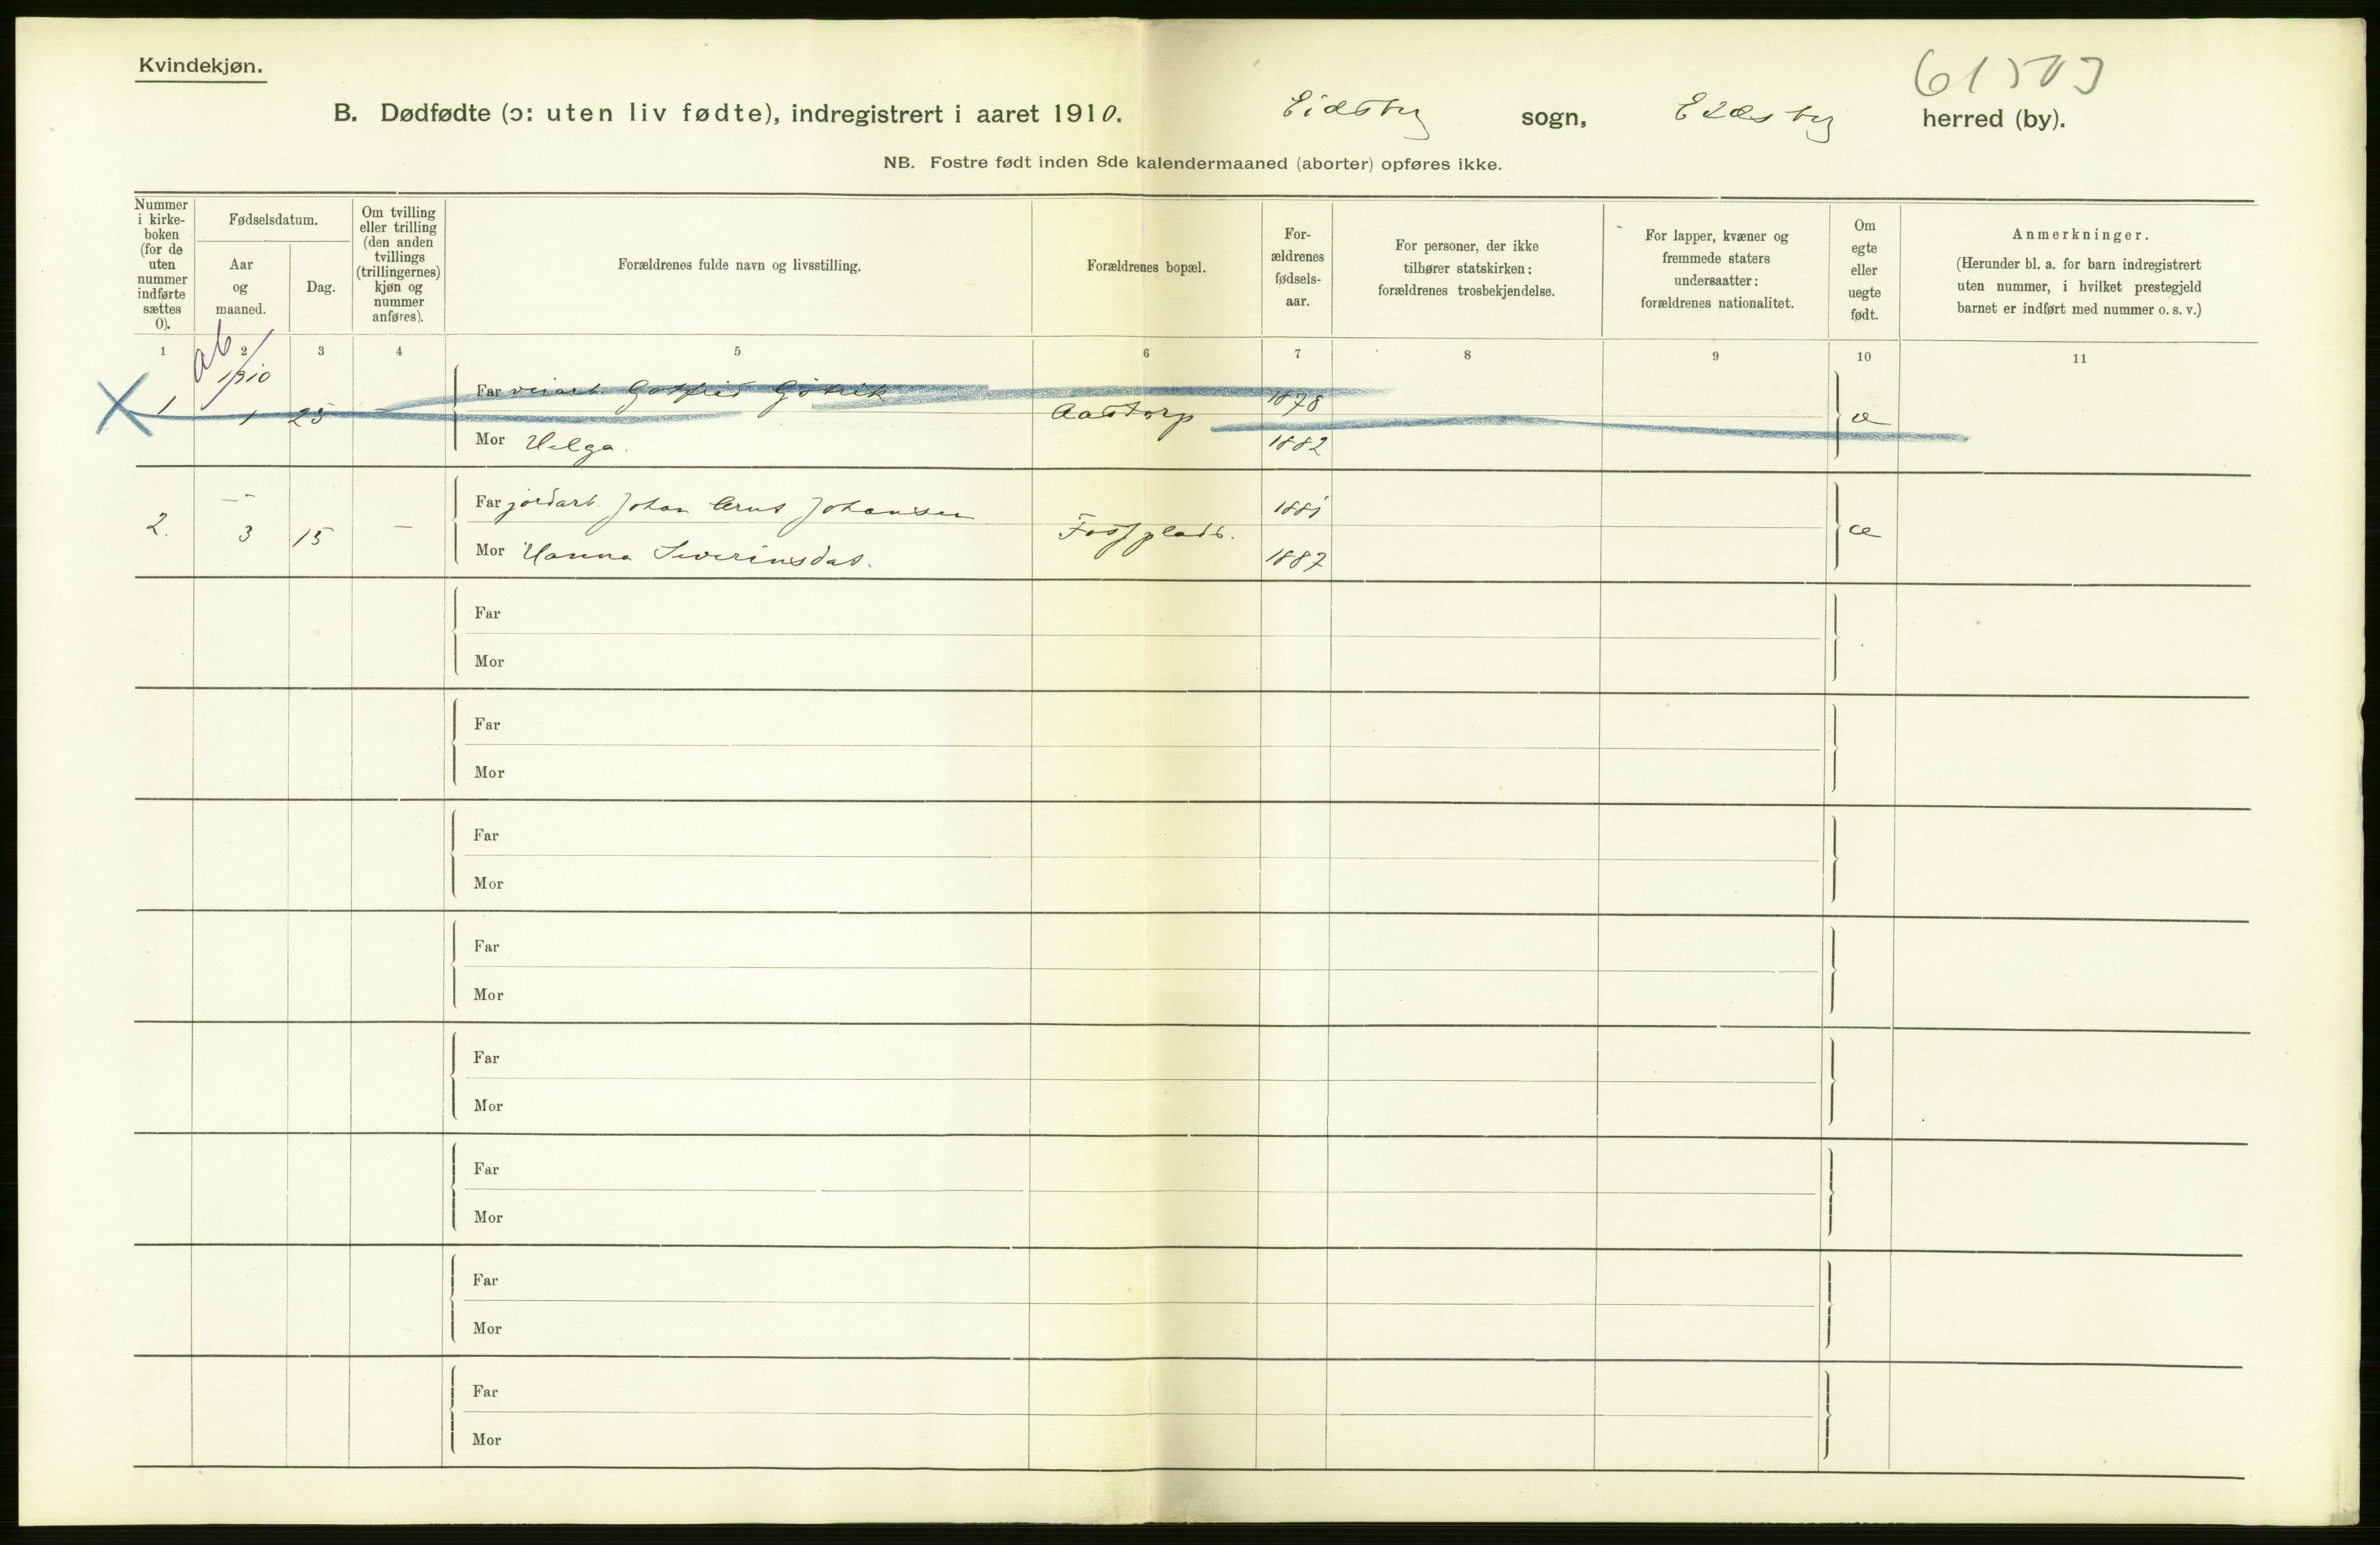 Kvindekjøn.
61503
B. Dødfødte (ɔ: uten liv fødte), indregistrert i aaret 1910. Eidsby sogn, Eidsby herred (by).
NB. Fostre født inden 8de kalendermaaned (aborter) opføres ikke.
Nummer i kirkeboken (for de uten nummer indførte sættes 0).
Fødselsdatum.
Aar og maaned.
Dag.
Om tvilling eller trilling (den anden tvillings (trillingernes) kjøn og nummer anføres).
Forældrenes fulde navn og livsstilling.
Forældrenes bopæl.
Forældrenes fødselsaar.
For personer, der ikke tilhører statskirken: forældrenes trosbekjendelse.
For lapper, kvæner og fremmede staters undersaatter: forældrenes nationalitet.
Om egte eller uegte født.
Anmerkninger.
(Herunder bl. a. for barn indregistrert uten nummer, i hvilket prestegjeld barnet er indført med nummer o. s. v.)
1 2 3 4 5 6 7 8 9 10 11
ab
1910
1 1 25 Far veiarb. Gotfried Aastorp 1878 æ
Mor Helga. 1882
2. 3 15 — Far jordarb. Johan Johansen 1881 æ
Mor Hanna Severinsdat. Fossplads. 1887
Far
Mor
Far
Mor
Far
Mor
Far
Mor
Far
Mor
Far
Mor
Far
Mor
Far
Mor